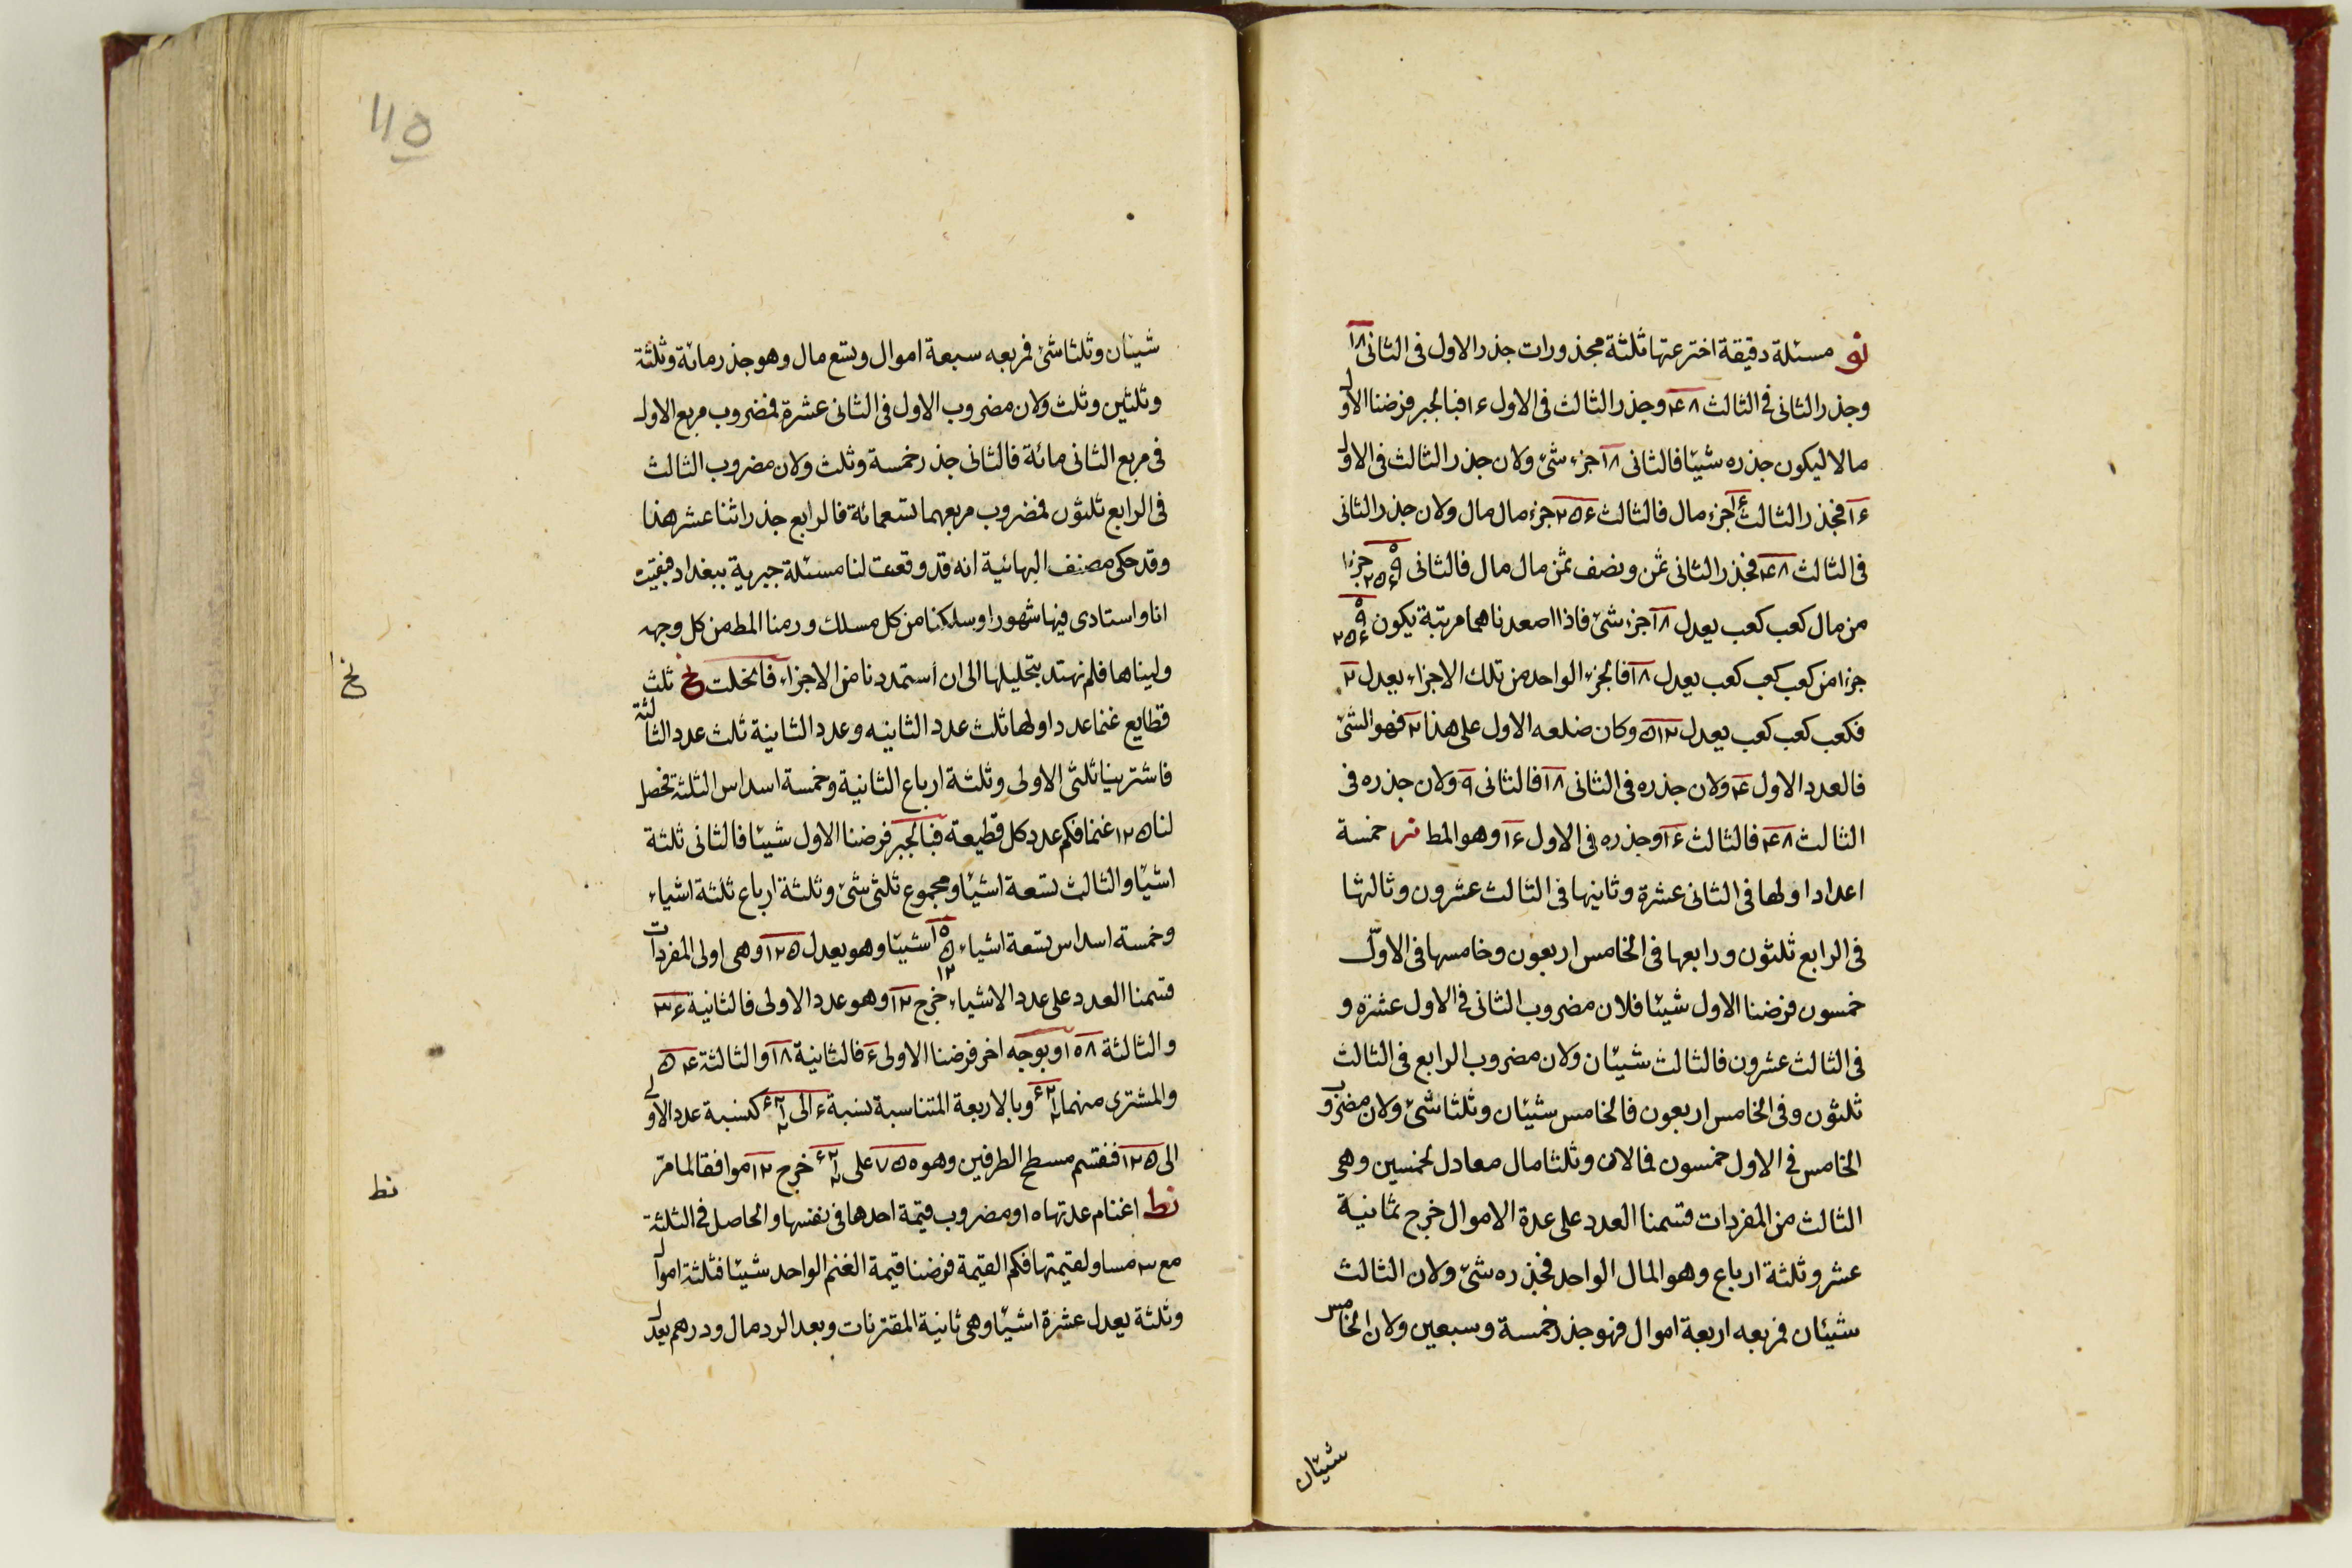 نو مسئلة دقيقة اخترعتها ثلثة مجذورات جذر الاول فى الثانى ١٨
وجذر الثانى فى الثالث ۴٨ وجذر الثالث فى الاول ١۶ فبالجبر فرضنا الاول
مالا ليكون جذره شيئا فالثانى ١٨ جزء شئ ولان جذر الثالث فى الاول
١۶ فجذر الثالث ١۶ جزء مال فالثالث ٢٥۶ جزء مال مال ولان جذر الثانى
فى الثالث ۴٨ فجذر الثانى ثمن ونصف ثمن مال مال فالثانى ٩ ٢٥۶ جزءا
من مال كعب كعب يعدل ١٨ جزء شئ فاذا اصعدناهما مرتبة يكون ٩ ٢٥۶
جزءا من كعب كعب كعب يعدل ١٨ فالجزء الواحد من تلك الاجزاء يعدل ٢
فكعب كعب كعب يعدل ٥١٢ وكان ضلعه الاول على هذا ٢ فهو الشئ
فالعدد الاول ۴ ولان جذره فى الثانى ١٨ فالثانى ٩ ولان جذره فى
الثالث ۴٨ فالثالث ١۶ وجذره فى الاول ١۶ وهو المط نر خمسة
اعداد اولها فى الثانى عشرة وثانيها فى الثالث عشرون وثالثها
فى الرابع ثلثون ورابعها فى الخامس اربعون وخامسها فى الاول
خمسون فرضنا الاول شيئا فلان مضروب الثانى فى الاول عشرة و
فى الثالث عشرون فالثالث شيئان ولان مضروب الرابع فى الثالث
ثلثون وفى الخامس اربعون فالخامس شيئان وثلثا شئ ولان مضروب
الخامس فى الاول خمسون فمالان وثلثا مال معادل لخمسين وهى
الثالث من المفردات قسمنا العدد على عدة الاموال خرج ثمانية
عشر وثلثة ارباع وهو المال الواحد فجذره شئ ولان الثالث
شيئان فمربعه اربعة اموال فهو جذر خمسة وسبعين ولان الخامس
شيئان
١١٥
شيئان وثلثا شئ فمربعه سبعة اموال وتسع مال وهو جذر مائة وثلثة
وثلثين وثلث ولان مضروب الاول فى الثانى عشرة فمضروب مربع الاول
فى مربع الثانى مائة فالثانى جذر خمسة وثلث ولان مضروب الثالث
فى الرابع ثلثون فمضروب مربعهما تسعمائة فالرابع جذر اثنا عشر هذا
وقد حكى مصنف البهائية انه قد وقعت لنا مسئلة جبرية ببغداد فبقيت
انا واستادى فيها شهورا وسلكنا من كل مسلك ورمنا المط من كل وجهه
وليناها فلم نهتد بتحليلها الى ان أستمددنا من الاجزاء فانخلت نح ثلث
قطايع غنما عدد اولها ثلث عدد الثانيه وعدد الثانية ثلث عدد الثالثة
فاشترينا ثلثى الاولى وثلثة ارباع الثانية وخمسة اسداس الثلثة فحصل
لنا ١٢٥ غنما فكم عدد كل قطيعة فبالجبر فرضنا الاول شيئا فالثانى ثلثة
اشيئا والثالث تسعة اشيئا ومجموع ثلثى شئ وثلثة ارباع ثلثة اشياء
وخمسة اسداس تسعة اشياء ١٠ ٥ ١٢ شيئا وهو يعدل ١٢٥ وهى اولى المفردات
قسمنا العدد على عدد الاشياء خرج ١٢ وهو عدد الاولى فالثانية ٣۶
والثالثة ١٠٨ وبوجه اخر فرضنا الاولى ۶ فالثانية ١٨ والثالثة ٥۴
والمشترى منهما وبالاربعة المتناسبة نسبة ۶ الى كنسبة عدد الاول
الى ١٢٥ فقسم مسطح الطرفين وهو ٧٥٠ على خرج ١٢ موافقا لما مر
نط اغنام عدتها ١٥ ومضروب قيمة احدها فى نفسها والحاصل فى الثلثة
مع ٣ مساو لقيمتها فكم القيمة فرضنا قيمة الغنم الواحد شيئا فثلثة اموال
وثلثة يعدل عشرة اشيئا وهى ثانية المقترنات وبعد الرد مال ودرهم يعدل
نح
نط